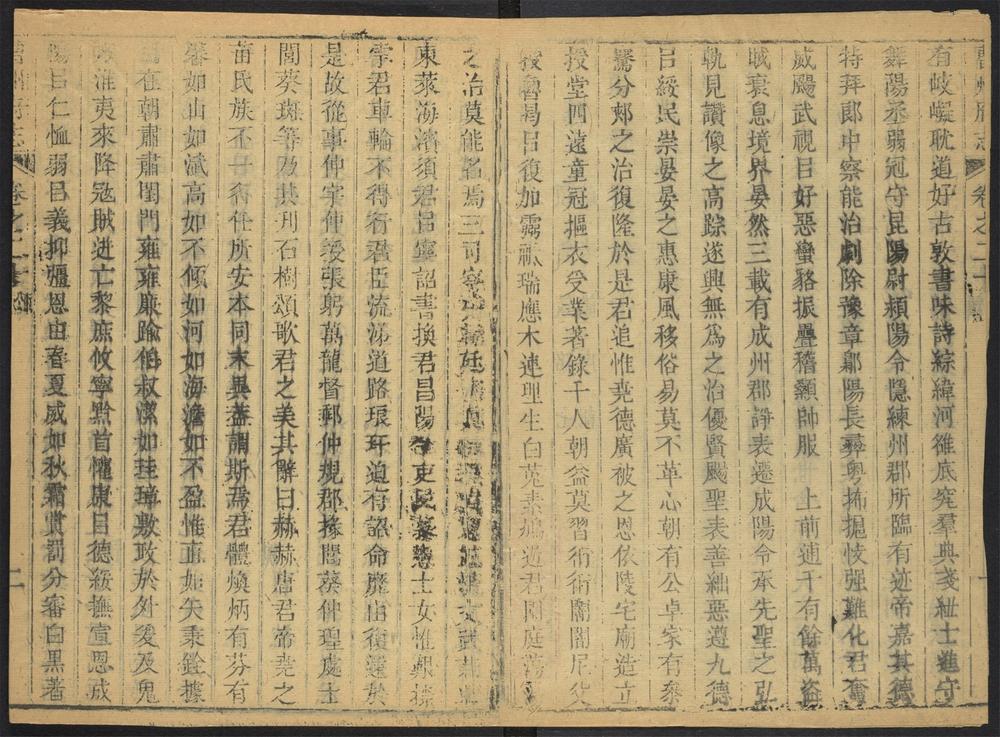 曹州府志 卷之二十 一
有岐嶷耽道好古敦書味詩綜緯河雒底究羣典戔紲士進守
舞陽丞弱冠守昆陽尉潁陽令隱練州郡所臨有迹帝嘉其德
特拜郎中察能治劇除豫章鄡陽長彝粵拂擾忮强難化君奮
威颺武視㠯好惡蠻貉振疊稽顙帥服 上前逋千有餘萬盜
賊衰息境界晏然三載有成州郡諍表遷成陽令承先聖之弘
軌見讚像之高踪遂興無爲之治優賢颺聖表善紬惡遵九德
㠯綏民崇晏晏之惠康風移俗易莫不革心朝有公卓家有參
騫分郟之治復隆於是君追惟堯德廣被之恩依陵宅廟造立
授堂四遠童冠摳衣受業著錄千人朝益莫習衎衎誾誾尼父
授魯曷㠯復加霝祇瑞應木連理生白菟素鳩遊君園庭
之治莫能名焉三司察
東萊海濱須君㠯寧詔書換君昌陽令吏民慕戀士女惟艱㩳
君車輪不得行君臣流涕道路琅玡道有詔命靡由復還於
是故從事仲字仲授張躬萬龍督郵仲規郡掾閭葵仲理處士
閭葵斑等乃共刋石樹頌歌君之美其辭曰赫赫唐君帝堯之
苗氏族不一各任所安本同末異葢謂斯焉君體煥炳有芬有
馨如山如岱高如不傾如河如海澹如不盈惟直如矢秉銓據
在朝肅肅閨門雍雍廉踰伯叔潔如珪璋敷政於外爰及鬼
淮夷來降冦賊迸亡黎庶攸寧黔首懽康㠯德綏撫宣恩成
陽㠯仁恤弱㠯義抑彊恩由春夏威如秋霜賞罰分審白黑著
卷之二十 二